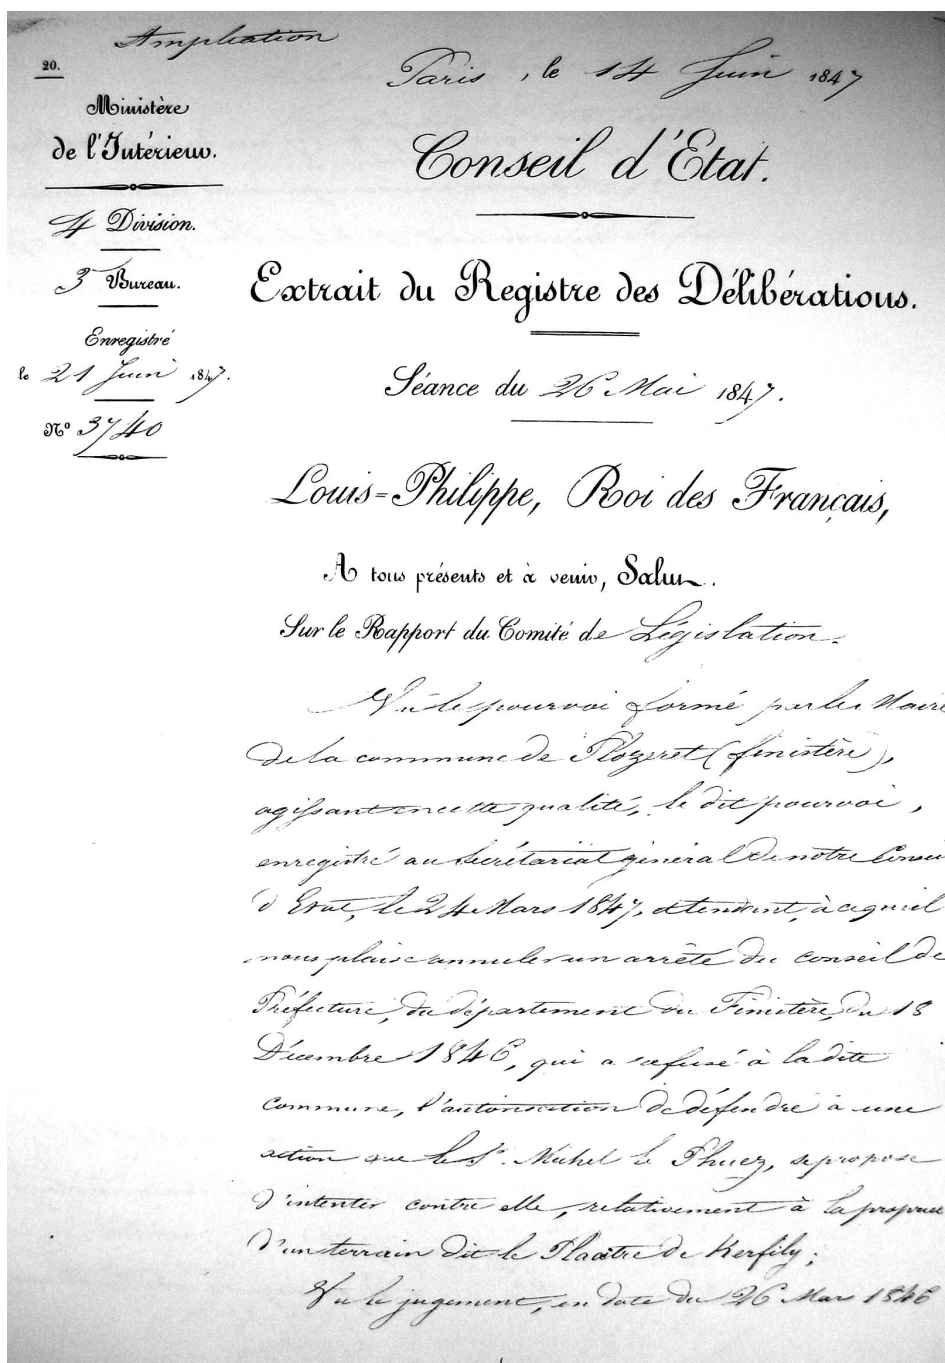 Ampliation
20.
Paris, le 14 Juin 1847
Ministère
de l'Intérieur.
Conseil d'Etat.
4 Division.
3 Bureau.
Extrait du Registre des Délibérations.
Enregistré
le 21 Juin 1847.
Séance du 26 Mai 1847.
N° 3740
Louis=Philippe, Roi des Français,
A tous présents et à venir, Salut.
Sur le Rapport du Comité de Législation.
Vu le pourvoi formé par le Maire
de la commune de (finistère),
agissant en cette qualité, le dit pourvoi,
enregistré au Secrétariat général de notre Conseil
d'Etat, le 24 Mars 1847, et tendant, à ce qu'il
nous plaise annuler un arrêté du conseil de
Préfecture, du département du Finistère, du 18
Décembre 1846, qui a refusé à la dite
commune, l'autorisation de défendre à une
action que le Sr. Michel le se propose
d'intenter contre elle, relativement à la propriété
d'un terrain dit le de Kerfily;
Vu le jugement, en date du 26 Mars 1846